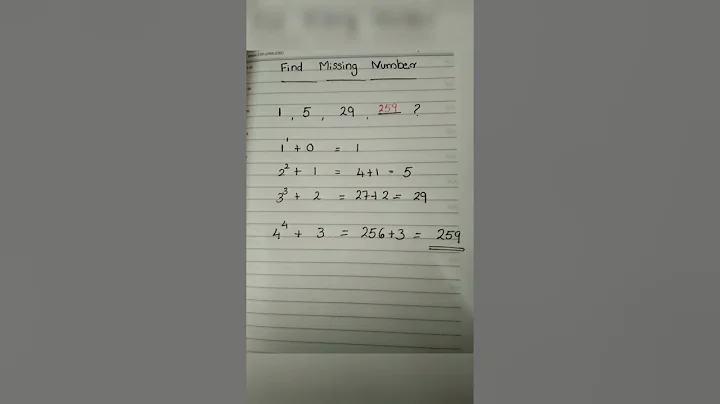 Find Missing Number
1, 5, 29, 259 ?
1¹ + 0 = 1
2² + 1 = 4+1 = 5
3³ + 2 = 27+2 = 29
4⁴ + 3 = 256+3 = 259